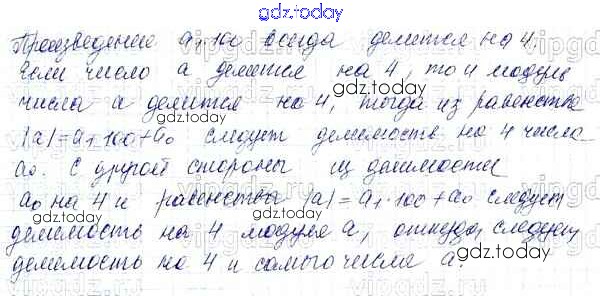 gdz.today
Произведение a₁·100 всегда делится на 4.
Если число a делится на 4, то и модуль
числа a делится на 4, тогда из равенства
|a|=a₁·100+a₀ следует делимость на 4 числа
a₀. С другой стороны из делимости
a₀ на 4 и равенства |a|=a₁·100+a₀ следует
делимость на 4 модуля a, откуда следует
делимость на 4 и самого числа a.
gdz.today
gdz.today
gdz.today
gdz.today